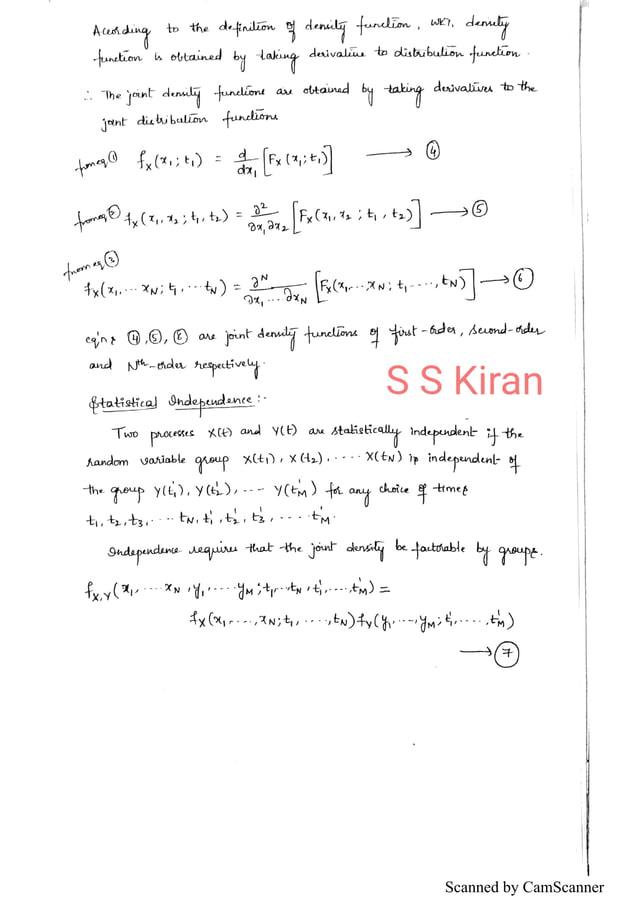 According to the definition of density function, WKT, density
function is obtained by taking derivative to distribution function.
∴ The joint density functions are obtained by taking derivatives to the
joint distribution functions
from eq ① f_X(x₁; t₁) = d/dx₁ [F_X(x₁; t₁)] ⟶ ④
from eq ② f_X(x₁, x₂; t₁, t₂) = ∂²/∂x₁∂x₂ [F_X(x₁, x₂; t₁, t₂)] ⟶ ⑤
from eq ③
f_X(x₁, ... x_N; t₁, ... t_N) = ∂^N/∂x₁...∂x_N [F_X(x₁, ... x_N; t₁ ...., t_N)] ⟶ ⑥
eq'ns ④, ⑤, ⑥ are joint density functions of first-order, second-order
and Nth-order respectively.
S S Kiran
Statistical Independence :-
Two processes X(t) and Y(t) are statistically independent if the
random variable group X(t₁), X(t₂), ..... X(t_N) is independent of
the group Y(t₁'), Y(t₂'), .... Y(t'_M) for any choice of times
t₁, t₂, t₃, .... t_N, t₁', t₂', t₃', ..... t'_M.
Independence requires that the joint density be factorable by groups.
f_X,Y(x₁, .... x_N, y₁, .... y_M; t₁, ... t_N, t₁', ...., t'_M) =
f_X(x₁, ...., x_N; t₁, ...., t_N) f_Y(y₁, ..., y_M; t₁', ....., t'_M)
⟶ ⑦
Scanned by CamScanner